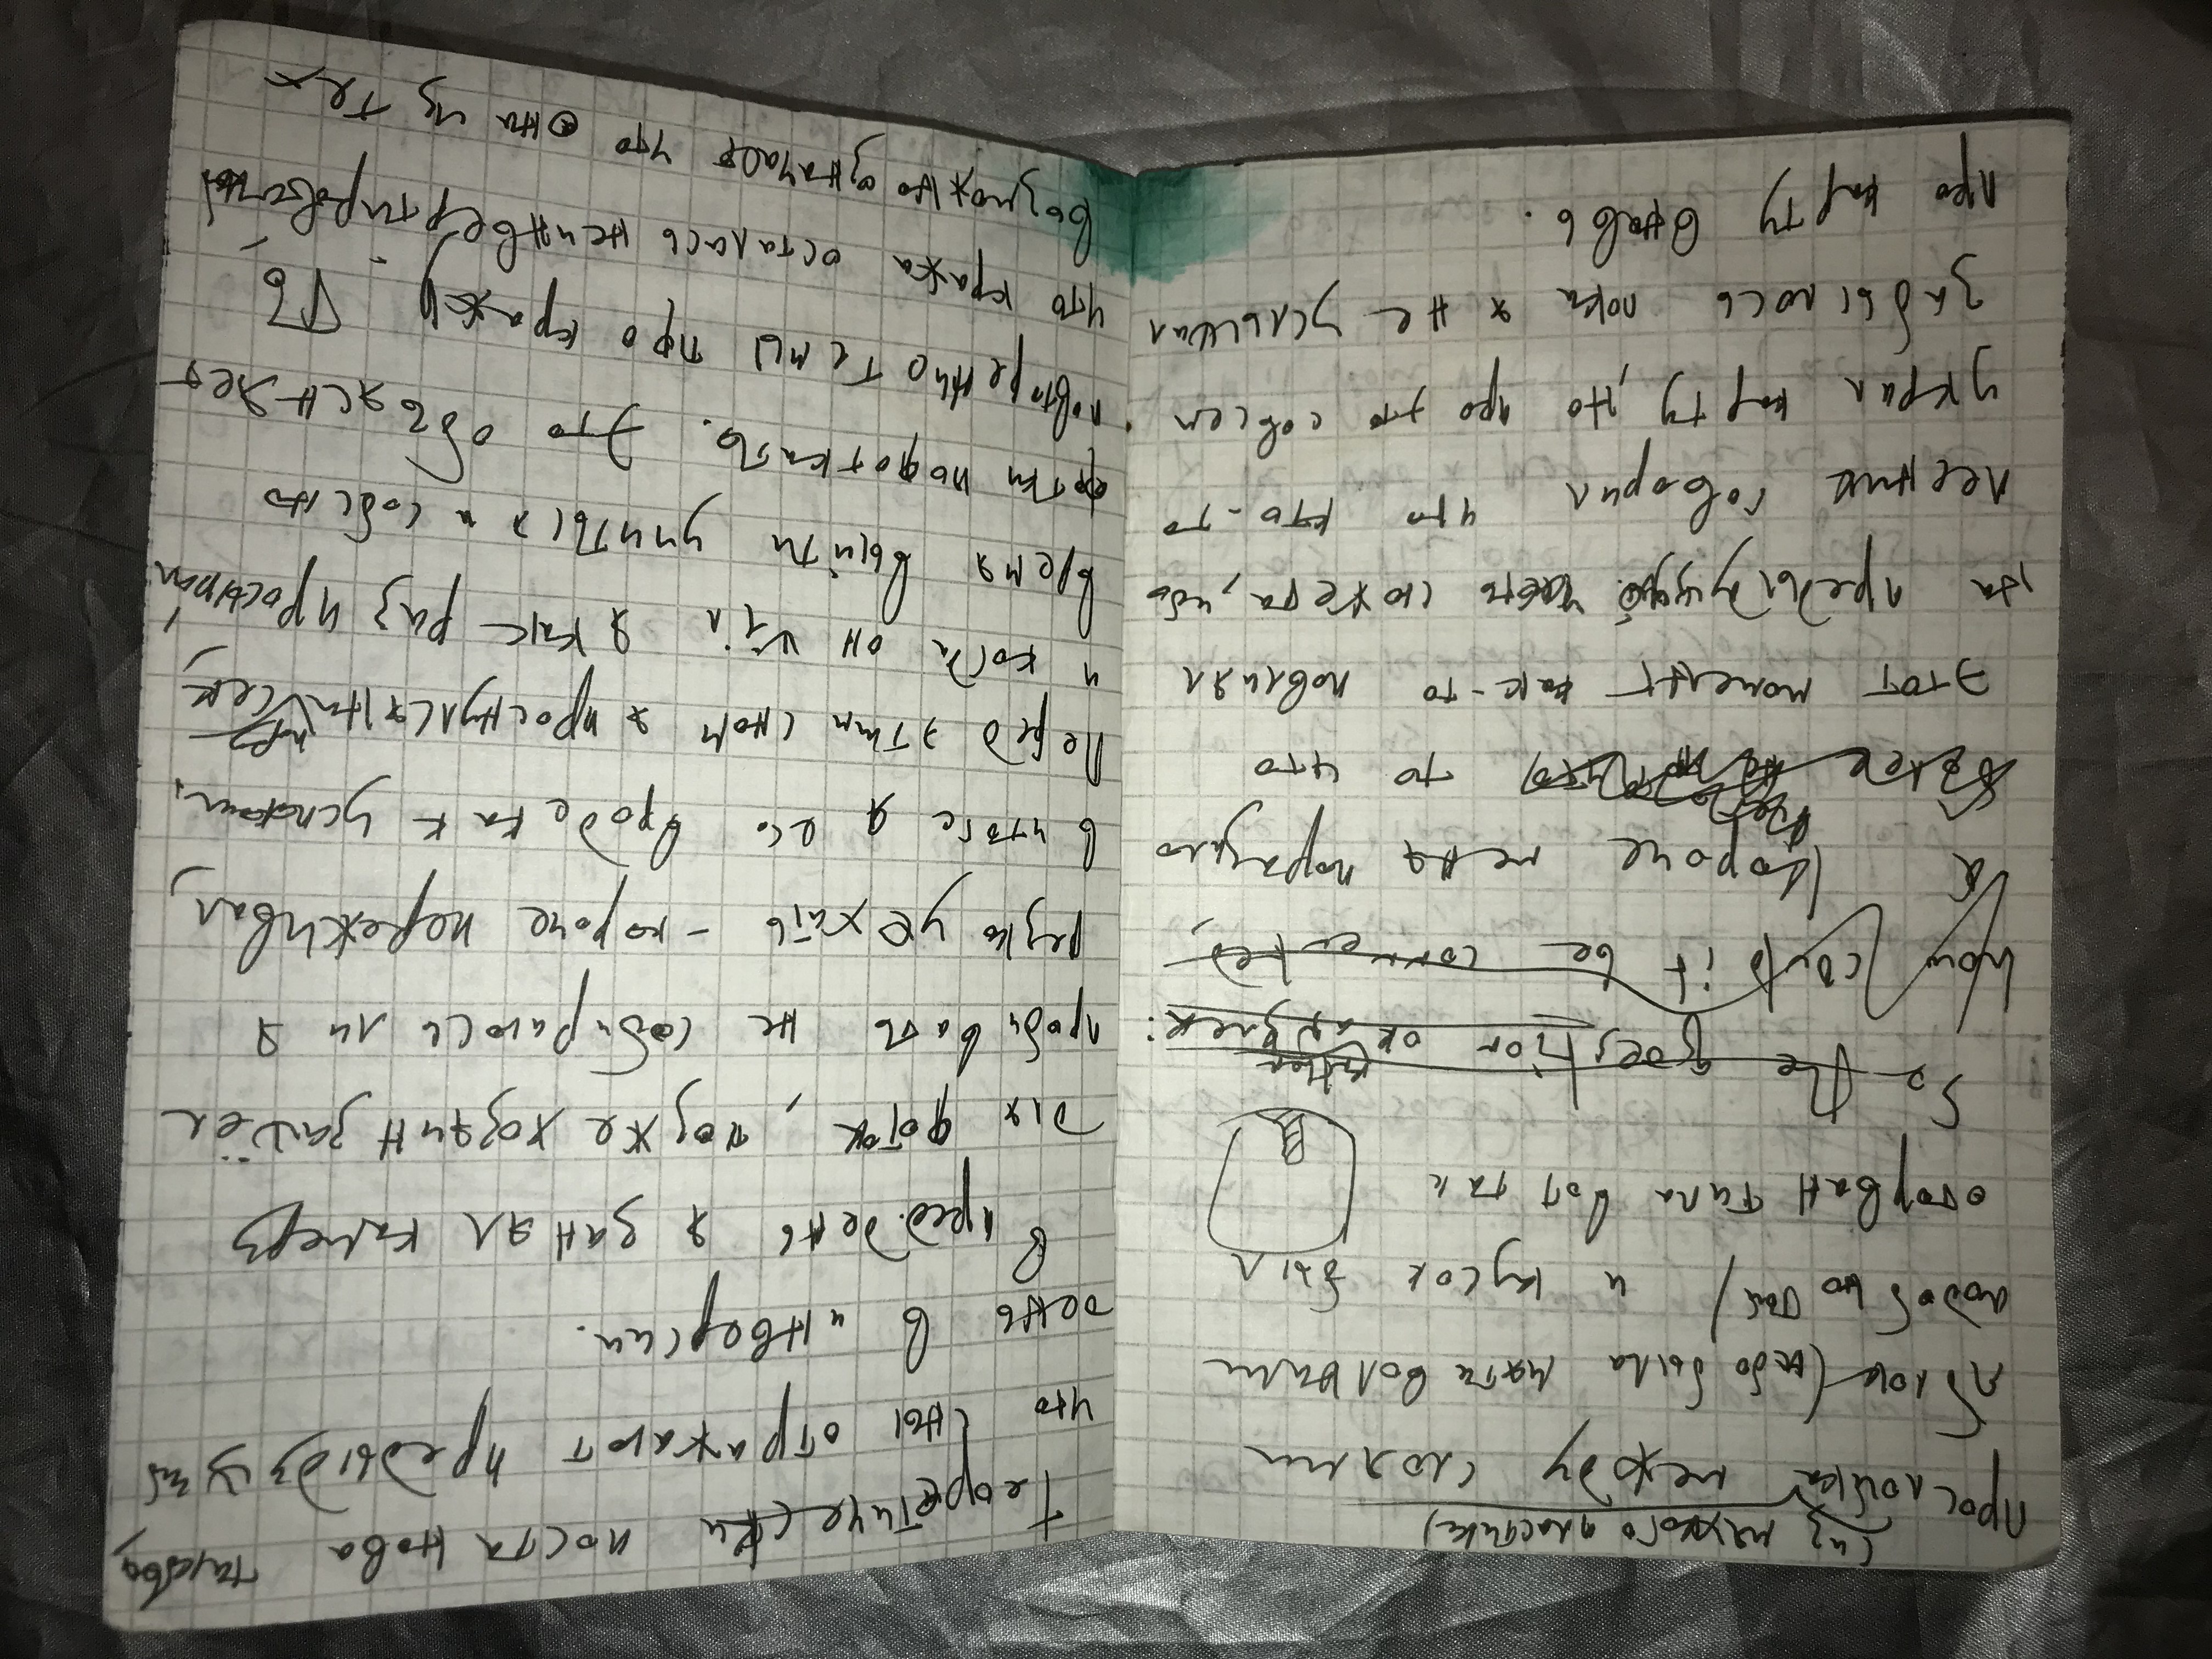 (из мяхкого пластика)
прослойка между слоями
яблок (ибо была мята волнами
подобно той) и кусок был
оторван типа вот так
So the question
How could it be connected,
Короче меня поразило
то что
этот момент как-то повлиял
на предыдущую часть сюжета, ибо
лесник говорил что кто-то
украл карту, но про это совсем
забылось пока я не услышал
про карту вновь.
Теоретически постанова такова,
что сны отражают предыдущий
день в инверсии.
В пред. день я занял камеру
для фоток, позже хозяин зашёл
пробивать не собираюсь ли я
резко уехать - короче переживал,
в итоге я его вроде как успокоил.
Перед этим сном я проснулся на пару сек,
и когда он я как раз
время выйти учиться и собсно
фотки пофоткать. Это объясняет
повторение темы про кражу. То
что кража осталась неинвертированой
возможно означает что она из тех